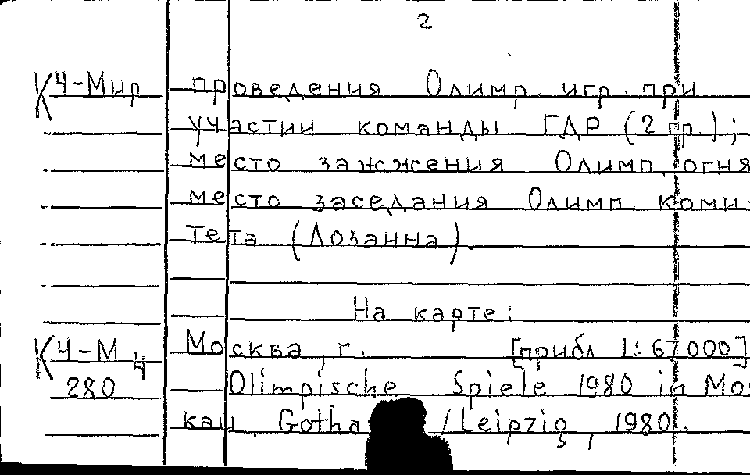 2
К4-Мир проведения Олимп. игр при
участии команды ГДР (2 гр.);
место зажжения Олимп. огня
место заседания Олимп. коми-
тета (Лозанна).
На карте:
К4-М Москва, г. [прибл 1:67000]
4
280 Olimpische Spiele 1980 in Mos
kau, Gotha /Leipzig, 1980.